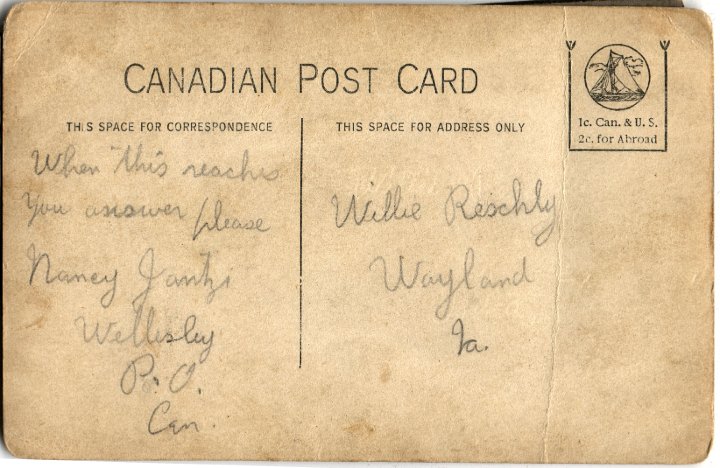 CANADIAN POST CARD
1c. Can. & U. S.
2c. for Abroad
THIS SPACE FOR CORRESPONDENCE
When this reaches
You answer please
Nancy Jantzi
Wellesley
P. O.
Can.
THIS SPACE FOR ADDRESS ONLY
Willie Reschly
Wayland
Ia.